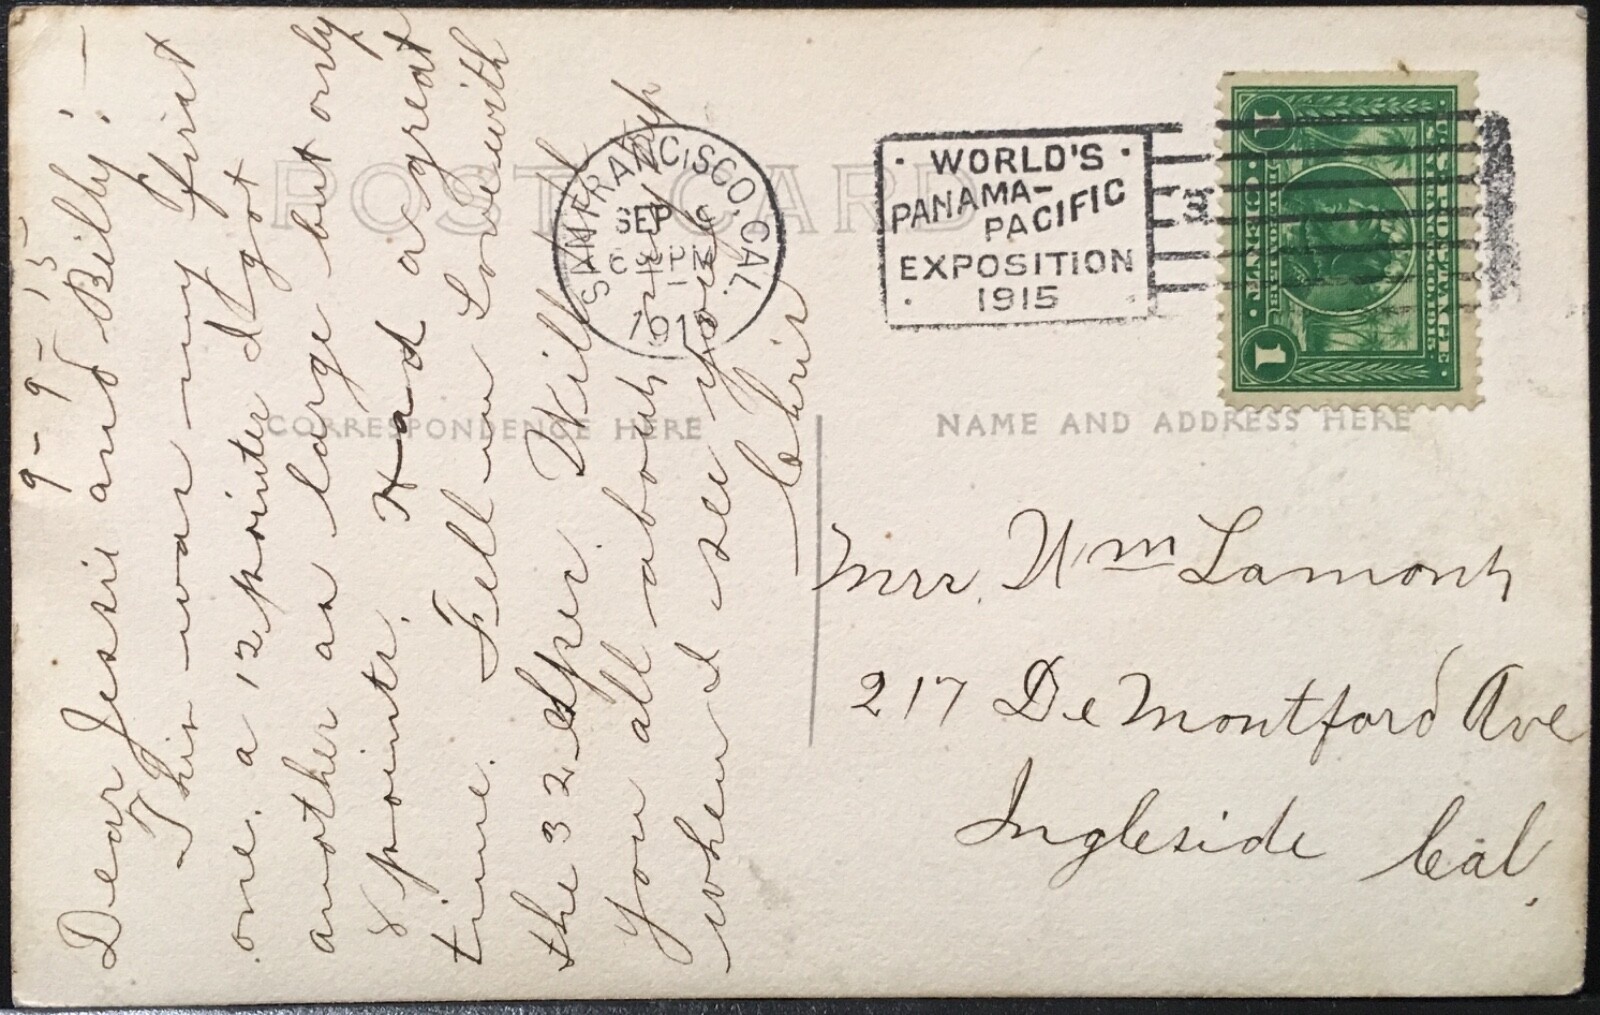 POST CARD
CORRESPONDENCE HERE
NAME AND ADDRESS HERE
9-9-15
Dear Jessie and Billy:-
This was my first
one. a 12 pointer I got
another as large but only
8 points. Had a great
time. Fell in Love with
the 32 Spec. Will tell
you all about my trip
when I see you
Chris
SAN FRANCISCO, CAL.
SEP
1915
WORLD'S
PANAMA-
PACIFIC
EXPOSITION
1915
U.S. POSTAGE
1 CENT 1
Mrs. Wm Lamont
217 De Montford Ave
Ingleside Cal.